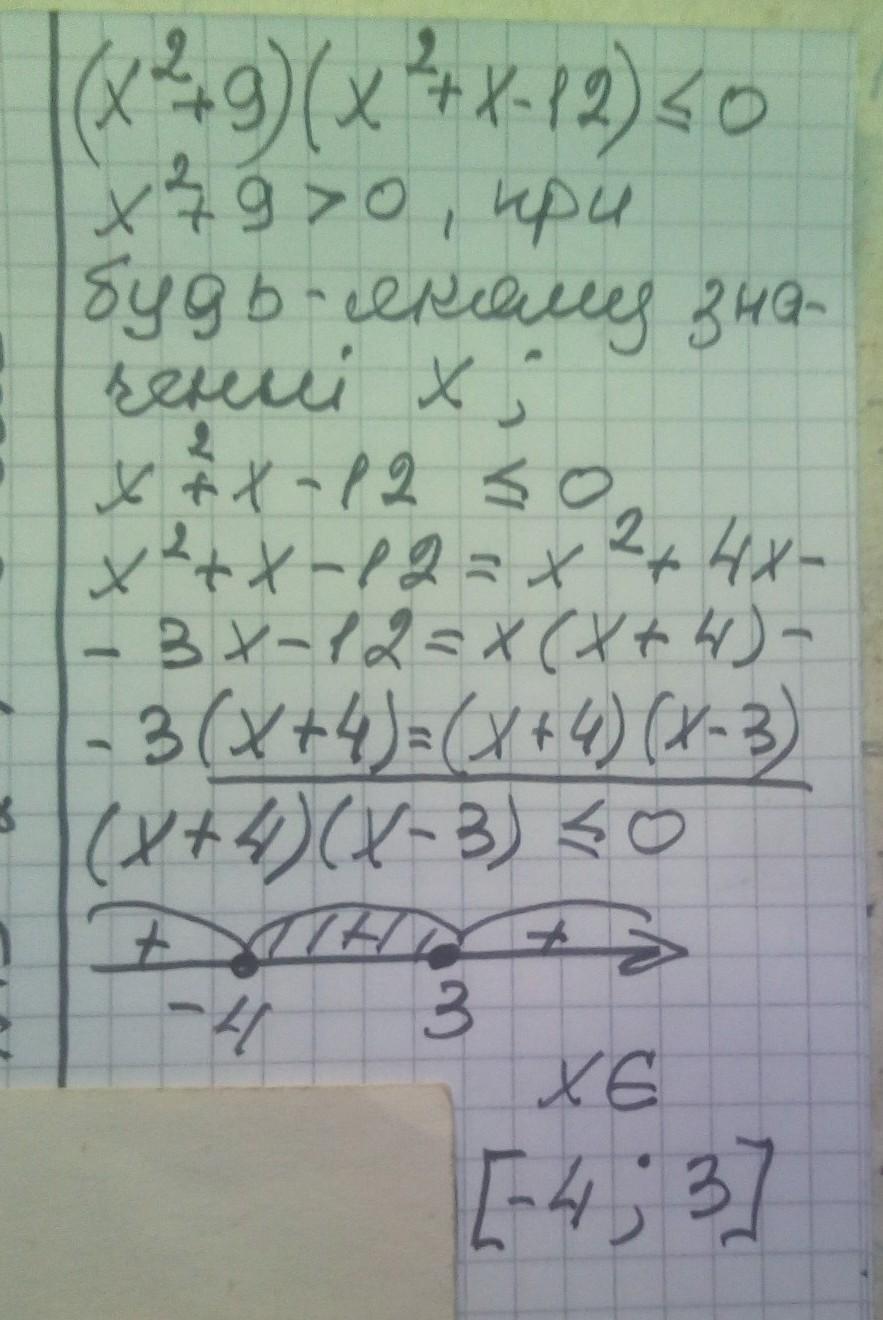 (x²+9)(x²+x-12) ≤ 0
x²+9 > 0, при
будь-якому зна-
ченні x ;
x²+x-12 ≤ 0
x²+x-12 = x²+4x-
- 3x-12 = x(x+4)-
- 3(x+4)=(x+4)(x-3)
(x+4)(x-3) ≤ 0
+ - +
-4 3
x ∈
[-4 ; 3]